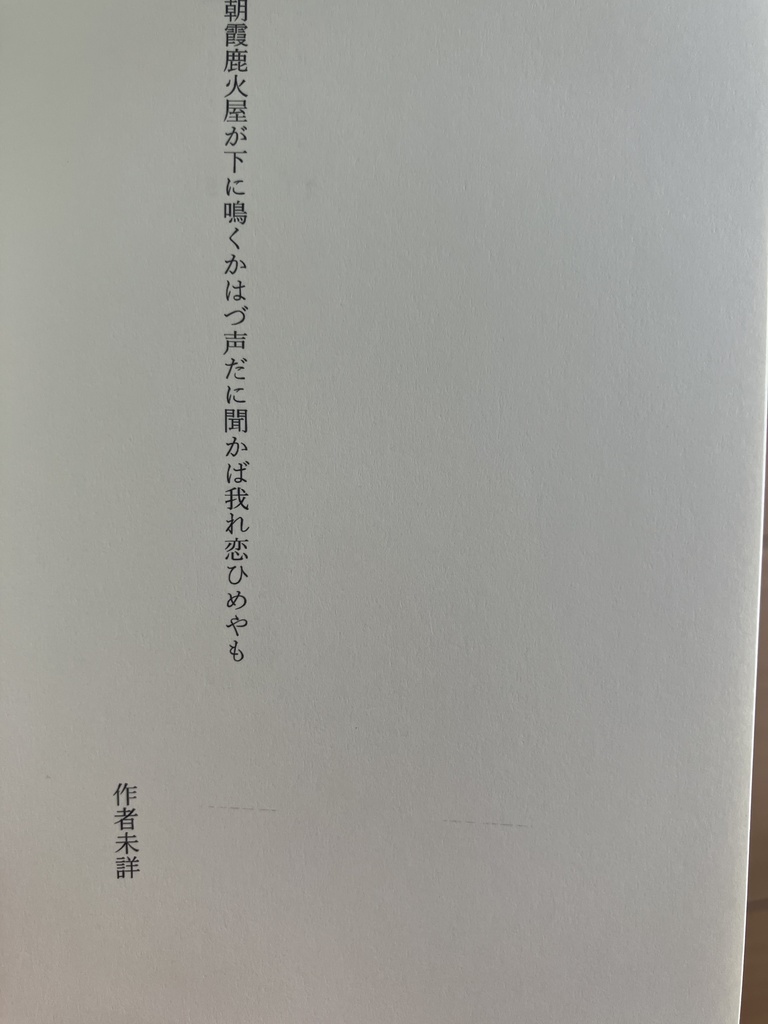 朝霞鹿火屋が下に鳴くかはづ声だに聞かば我れ恋ひめやも
作者未詳